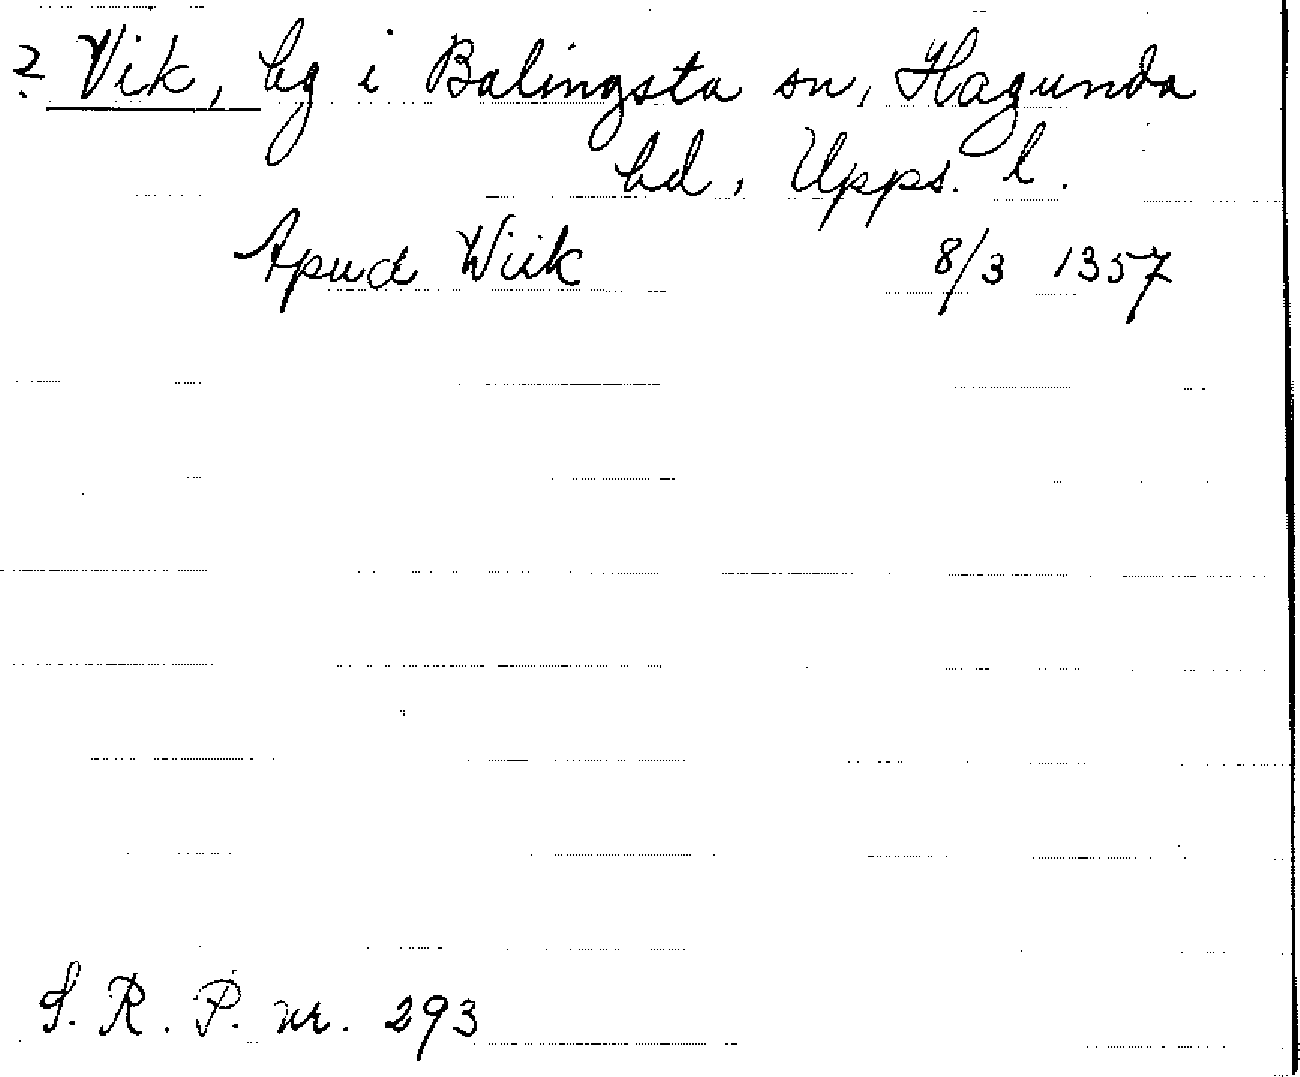 ? Vik, hg i Balingsta sn, Hagunda
hd, Upps. l.
Apud Wiik 8/3 1357
S. R. P. nr. 293